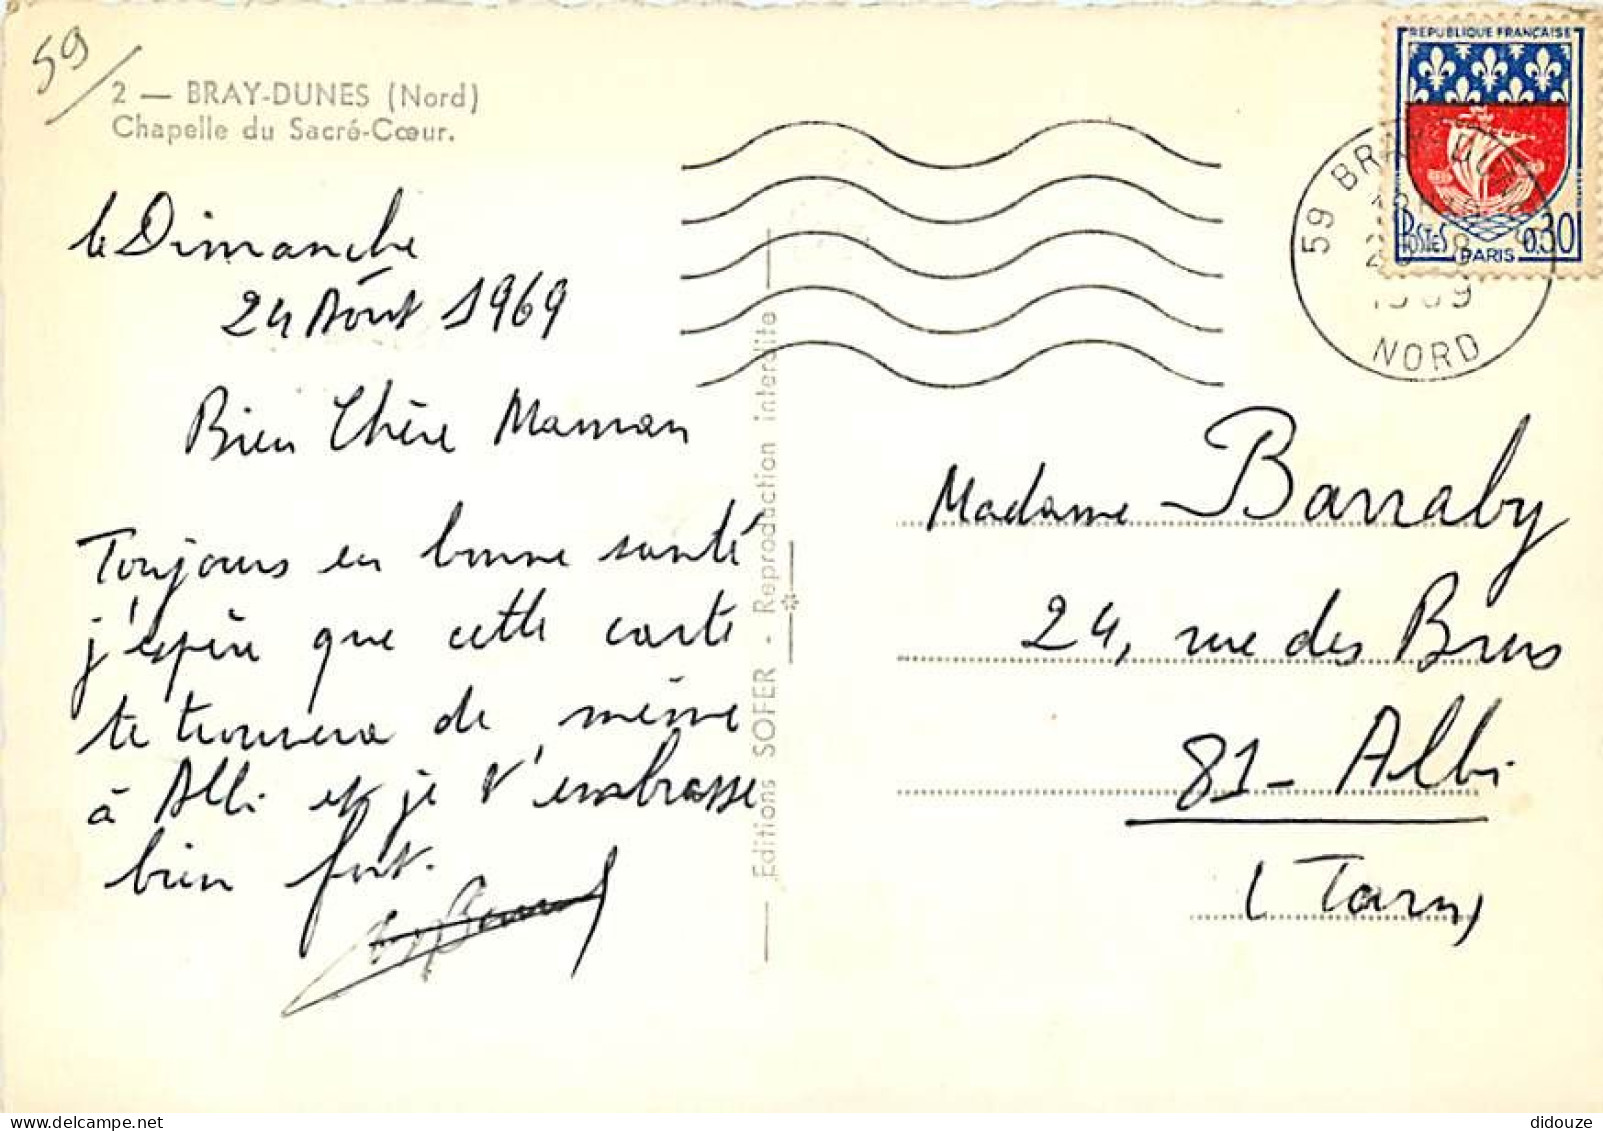 59/
2 — BRAY-DUNES (Nord)
Chapelle du Sacré-Cœur.
le Dimanche
24 Août 1969
Bien Chère Maman
Toujours en bonne santé
j'espère que cette carte
te trouvera de même
à Albi et je t'embrasse
bien fort.
Editions SOFER - Reproduction interdite
REPUBLIQUE FRANÇAISE
POSTES
0,30
PARIS
59 BRAY-DUNES
1969
NORD
Madame Barraby
24, rue des Brus
81 - Albi
(Tarn)
didouze